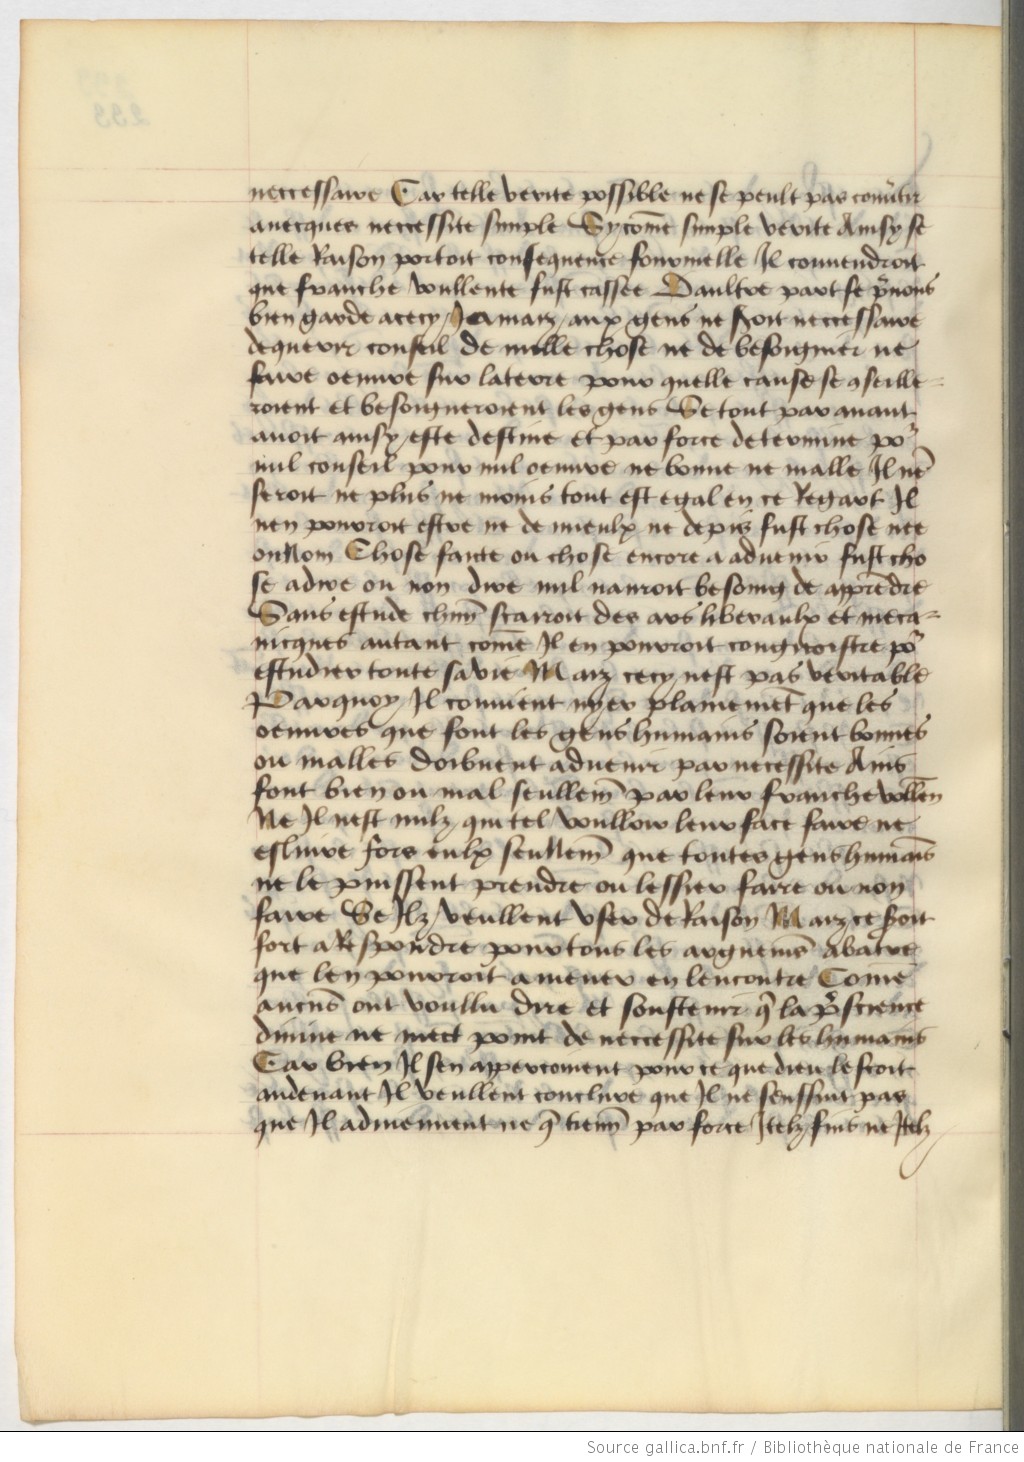 neccessaire Car telle verite possible ne se peult pas conv̄tir
auecques neccessite simple Sycōme simple verite Ainsy se
telle Raison portoit consequence fourmelle Il conuendroit
que franche vullente fust cassee Daultre part se p̄nons
bien garde a cecy Jamaiz aux gens ne s̄oit neccessaire
de querir conseil de nulle chose ne de besoignier ne
faire oeuure sur la terre pour quelle cause se 9seille=
roient et besoigneroient les gens Se tout par auant
auoit ainsy este destine et par force determine po͛
nul conseil pour nul oeuure ne bonne ne malle Il nē
seroit ne plus ne moins tout est egal en ce Regart Il
nen pourroit estre ne de mieulx ne de piz fust chose nee
ou Non Chose faitte ou chose encore a aduenir fust cho
se a dire ou non dire nul nauroit besoing de apprēdre
Sans estude chūn scarroit des ars liberaulx et meca=
nicques autant cōme Il en pourroit congnoistre po͛
estudier toute sa vie Maiz cecy nest pas veritable
Parquoy Il conuient nyer plainemēt que les
oeuures que font les gens humains soient bonnes
ou malles doibuent aduenir par necessite Ains
font bien ou mal seullem̄ par leur franche vollēn
Ne Il nest nulz qui tel voulloir leur face faire ne
eslire fors eulx seullem̄ que toutes gens humaīs
ne le puissent prendre ou lessier faire ou non
faire Se Ilz veullent vser de Raison Maiz ce s̄oit
fort a Respondre pour tous les argumēs abatre
que len pourroit amener en lencontre Come
aucūs ont voullu dire et soustenir q̄ la p̄science
diuine ne mect point de neccessite sur les humains
Car bien Il sen apperçoiuent pour ce que dieu le scoit
au deuant Il veullent conclure que Il ne senssuit pas
que Il aduiennent ne q̄ tienn̄ par force Itelz fins ne Itelz
Source gallica.bnf.fr / Bibliothèque nationale de France